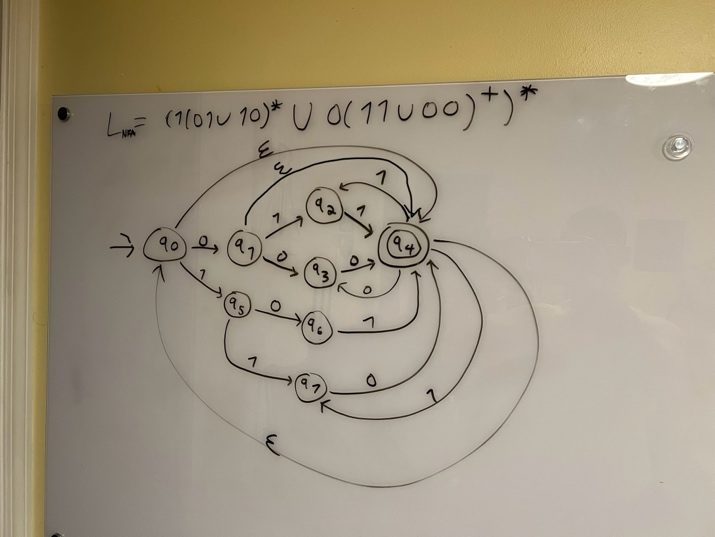 L_NFA = (1(01∪10)* ∪ 0(11∪00)⁺)*
ε
ε
1
q2
1 1
→ q0 0 q1 q4
0 q3 0
1 0
q5 0 q6 1
1 q7 0
1
ε